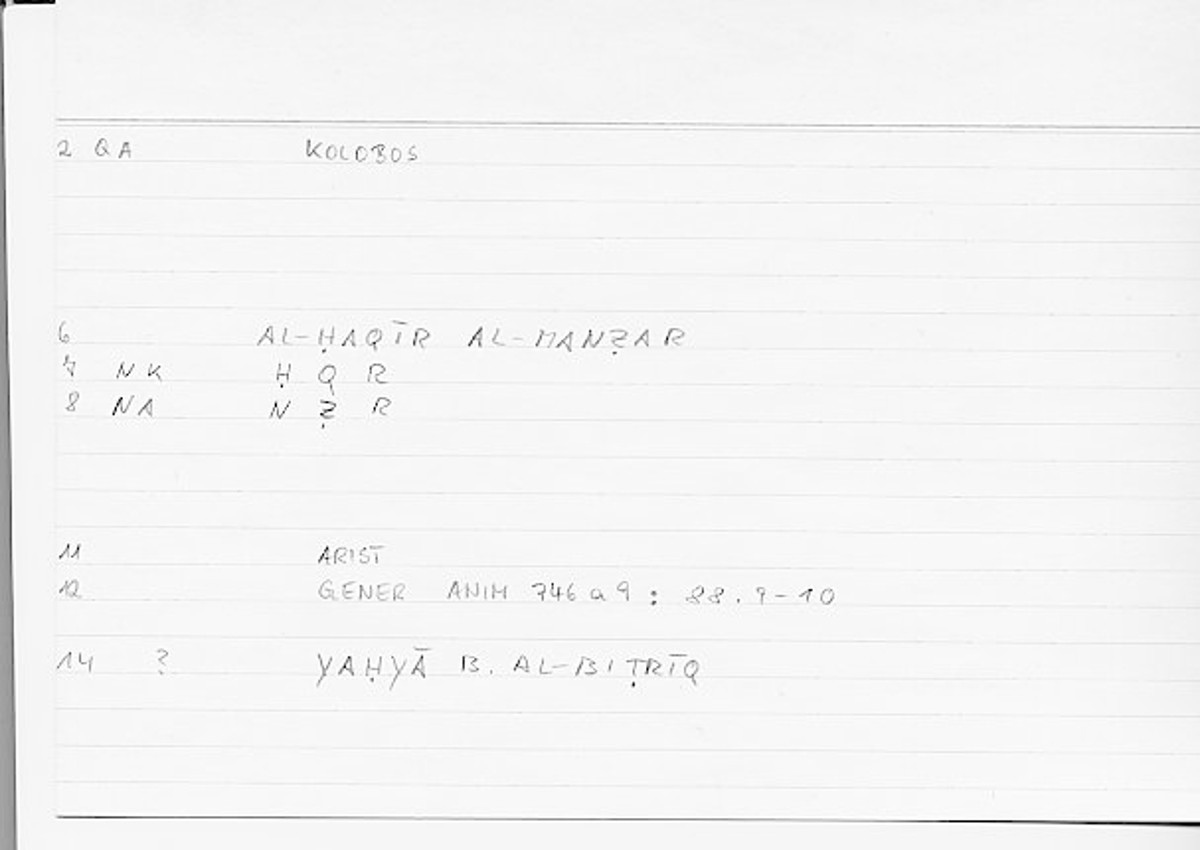 2 QA KOLOBOS
6 AL-ḤAQĪR AL-MANẒAR
7 NK Ḥ Q R
8 NA N Ẓ R
11 ARIST
12 GENER ANIM 746 a 9 : 88.9-10
14 ? YAḤYĀ B. AL-BIṬRĪQ